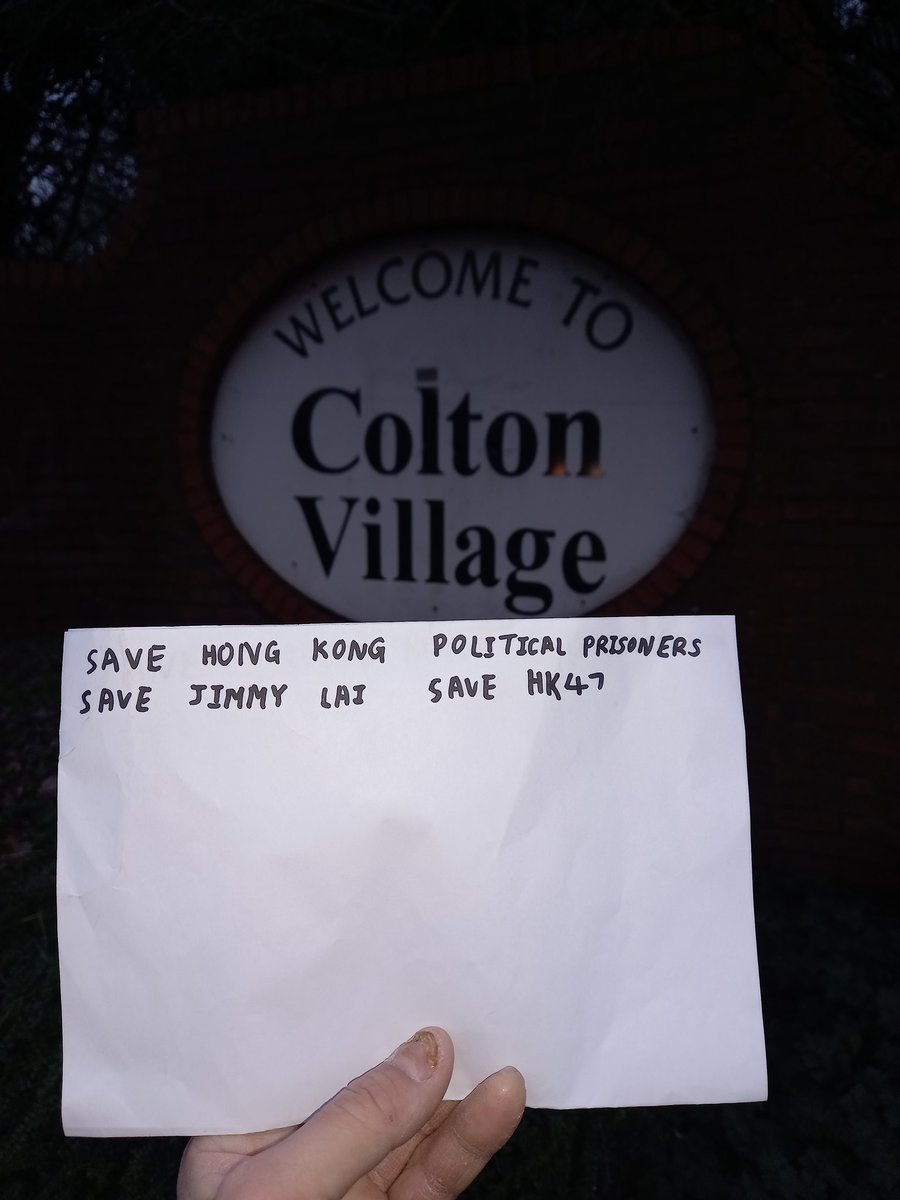 WELCOME TO
Colton
Village
SAVE HONG KONG POLITICAL PRISONERS
SAVE JIMMY LAI SAVE HK47